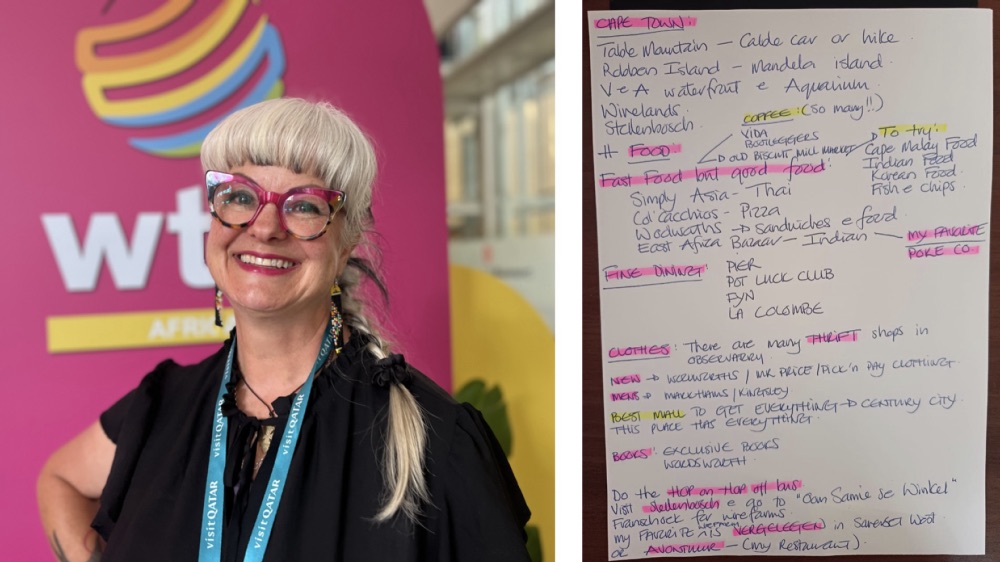 wt
AFRICA
visit QATAR
visit QATAR
visit QATAR
CAPE TOWN:
Table Mountain – Cable car or hike
Robben Island – Mandela island.
V e A waterfront e Aquarium
Winelands.
Stellenbosch.
COFFEE: (so many!!)
VIDA
BOOTLEGGERS
OLD BISCUIT MILL MARKET
To try:
Cape Malay Food
Indian Food
Korean Food.
Fish e Chips.
# FOOD
Fast Food but good food:
Simply Asia – Thai
Col'cacchios – Pizza
Woolworths → Sandwiches e food.
East Africa Bazaar – Indian
MY FAVORITE
POKE CO.
FINE DINING:
PIER
POT LUCK CLUB
FYN
LA COLOMBE
CLOTHES: There are many THRIFT shops in
OBSERVATRY.
NEW → WOOLWORTHS / MR PRICE / PICK'n PAY CLOTHING.
MENS → MARKHAMS / KINGSLEY
BEST MALL TO GET EVERYTHING → CENTURY CITY.
THIS PLACE HAS EVERYTHING.
BOOKS: EXCLUSIVE BOOKS
WORDSWORTH.
Do the HOP on HOP off bus
Visit Stellenbosch e go to "Oom Samie se Winkel"
Franschoek for winefarms.
my FAVORITE IS VERGELEGEN in Somerset West
or AVONTUUR – (my Restaurant).